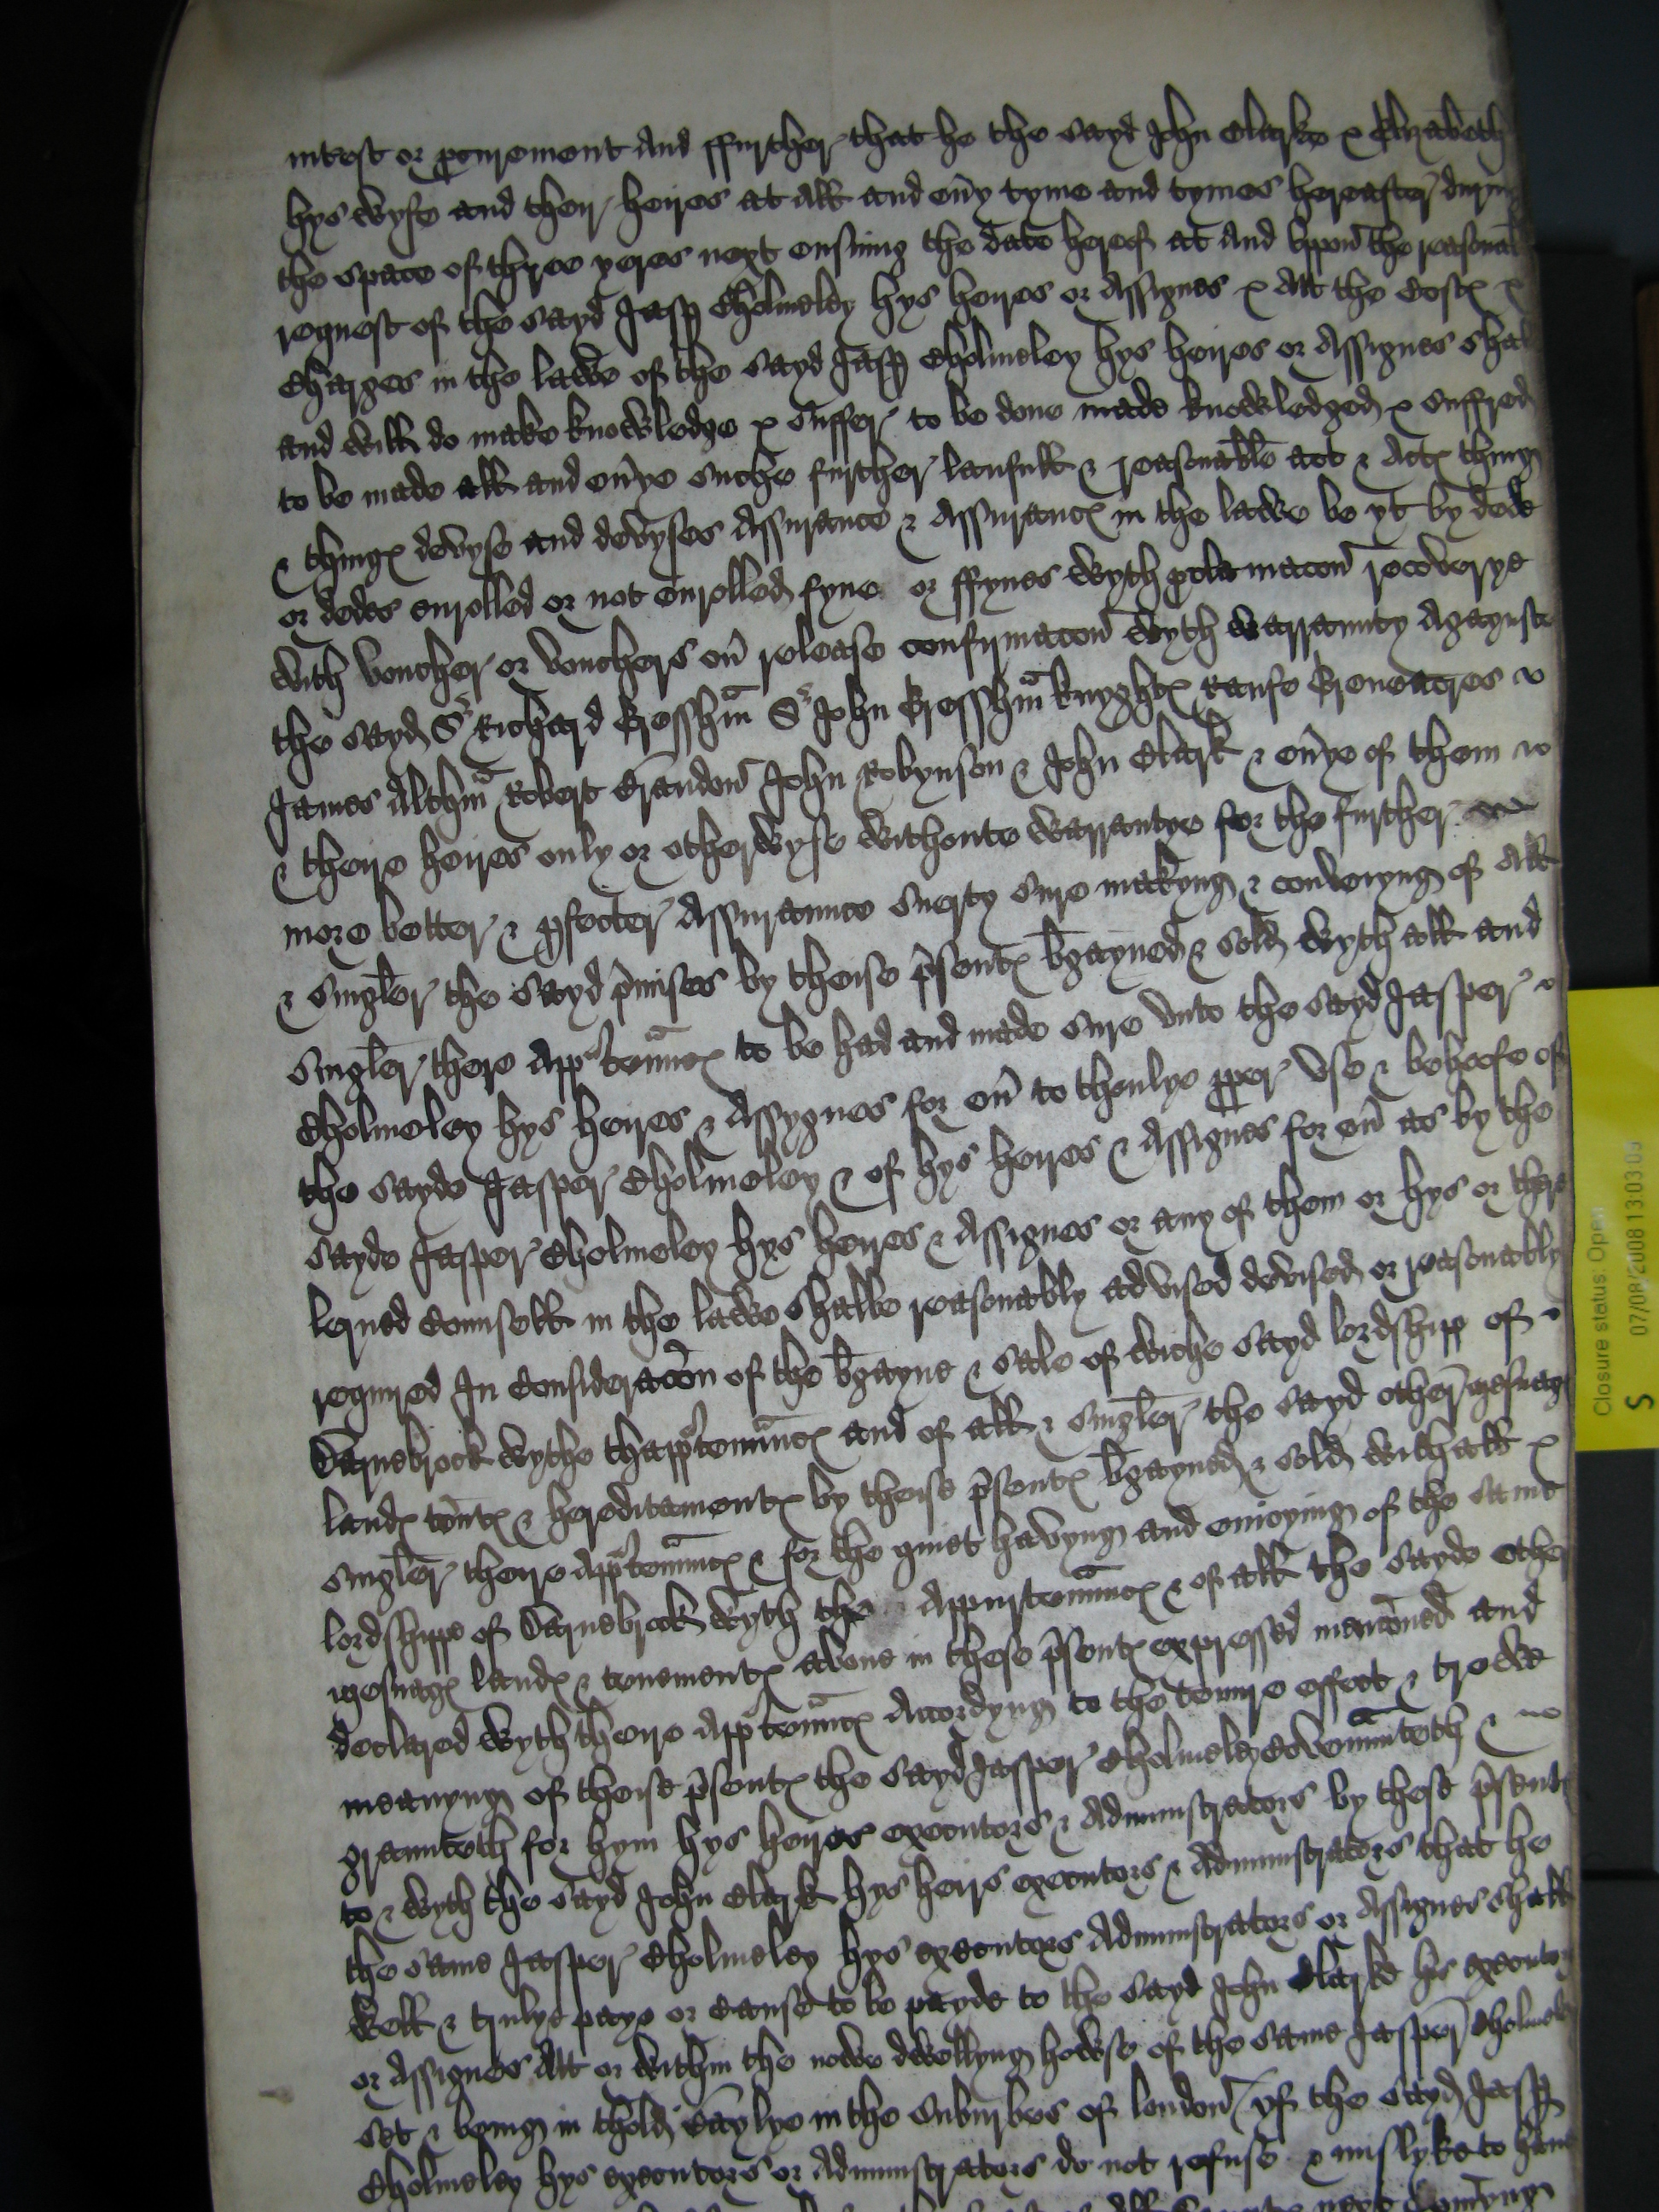 intrest or p̱curement And ffurther that he the sayd John Clarke & Elizabeth
hys wyfe and their heires at all and eu̅y tyme and tymes hereafter during
the space of three yeres next ensuing the date hereof at and vppon̅ the reasonabl
request of the sayd Jasp̱ Cholmeley hys heires or Assignes & Att the Costꝭ &
Charges in the lawe of the sayd Jasp̱ Cholmeley hys heires or Assignes shall
and will do make knowledge & suffer to be done made knowledged & suffred
to be made all and eu̅ye suche further laufull & reasonable act & Actꝭ thing
& thingꝭ devyse and devyses Assurance & Assurancꝭ in the lawe be yt by dede
or dedes enrolled or not enrolled fyne or ffynes wyth p̱clamacon̅ recoverye
with voucher or vouchers ou̅ release confirmacon̅ wyth warraunty Agaynste
the sayd Sʳ Richard Gresshm̅ Sʳ John Gresshm̅ knyghtꝭ Raufe Greneacres
James Althm̅ Robert John Robynson & John Clark & eu̅ye of them
& theire heires only or otherwyse withoute warrantye for the further
more better & p̱fecter Assuraunce suerty sure makyng & conveyng of All
& singler the sayd p̅misses by theise p̅sentꝭ b̅gayned & sold wyth all and
singler there Appʳten̅ncꝭ to be had and made sure vnto the sayd Jasper
Cholmeley hys heires & Assygnes for eu̅ to thonlye p̱per vse & behoofe of
the sayde Jasper Cholmeley & of hys heires & Assignes for eu̅ as by the
sayde Jasper Cholmeley hys heires & Assignes or any of them or hys or there
lerned Counsell in the lawe shalbe reasonably advised devised or reasonably
required In Consideracon̅ of the b̅gayne & sale of wiche sayd lordshipp of
Darnebrook wythe thappʳten̅ncꝭ and of all & singler the sayd other mesuagꝭ
landꝭ ten̅tꝭ & hereditamentꝭ by theise p̅sentꝭ b̅gayned & sold with all &
singler theire Appʳten̅ncꝭ & for the quiet havyng and enioying of the same
lordshippe of Darnebrook wyth the Appurten̅ncꝭ & of all the sayde other
mesuagꝭ landꝭ & tenementꝭ above in these p̅sentꝭ expressed mencōned and
declared wyth theire Appʳten̅ncꝭ Accordyng to the tenure effect & trewe
meanyng of theise p̅sentꝭ the sayd Jasper Cholmeley Coven̅nteth &
graunteth for hym hys heires executors & Administrators by these p̅sentꝭ
to & wyth the sayd John Clark hys heirs executors & Administrators that he
the same Jasper Cholmeley hys executors Administrators or Assignes shall
well & trulye paye or cause to be payde to the sayd John Clarke his executors
or Assignes Att or within the nowe dwellyng howse of the same Jasper Cholmeley
set & being in thold Baylye in the Suburbes of london̅ yf the sayd Jasp̱
Cholmeley hys executors or Administrators do not refuse & myslyke to haue
Closure status: Open
S 07/08/2008 13:03:03